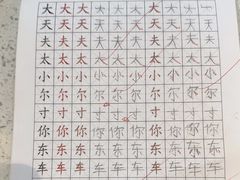 大大大大大大大大大一
天天天天天天天天天天
夫夫夫夫夫夫夫夫夫夫
太太太太太太太太太太
小小小小小小小小小小
尔尔尔尔尔尔尔尔尔尔
寸寸寸寸寸寸寸寸寸寸
你你你你你你你你你你
东东东东东东东东东东
车车车车车车车车车车